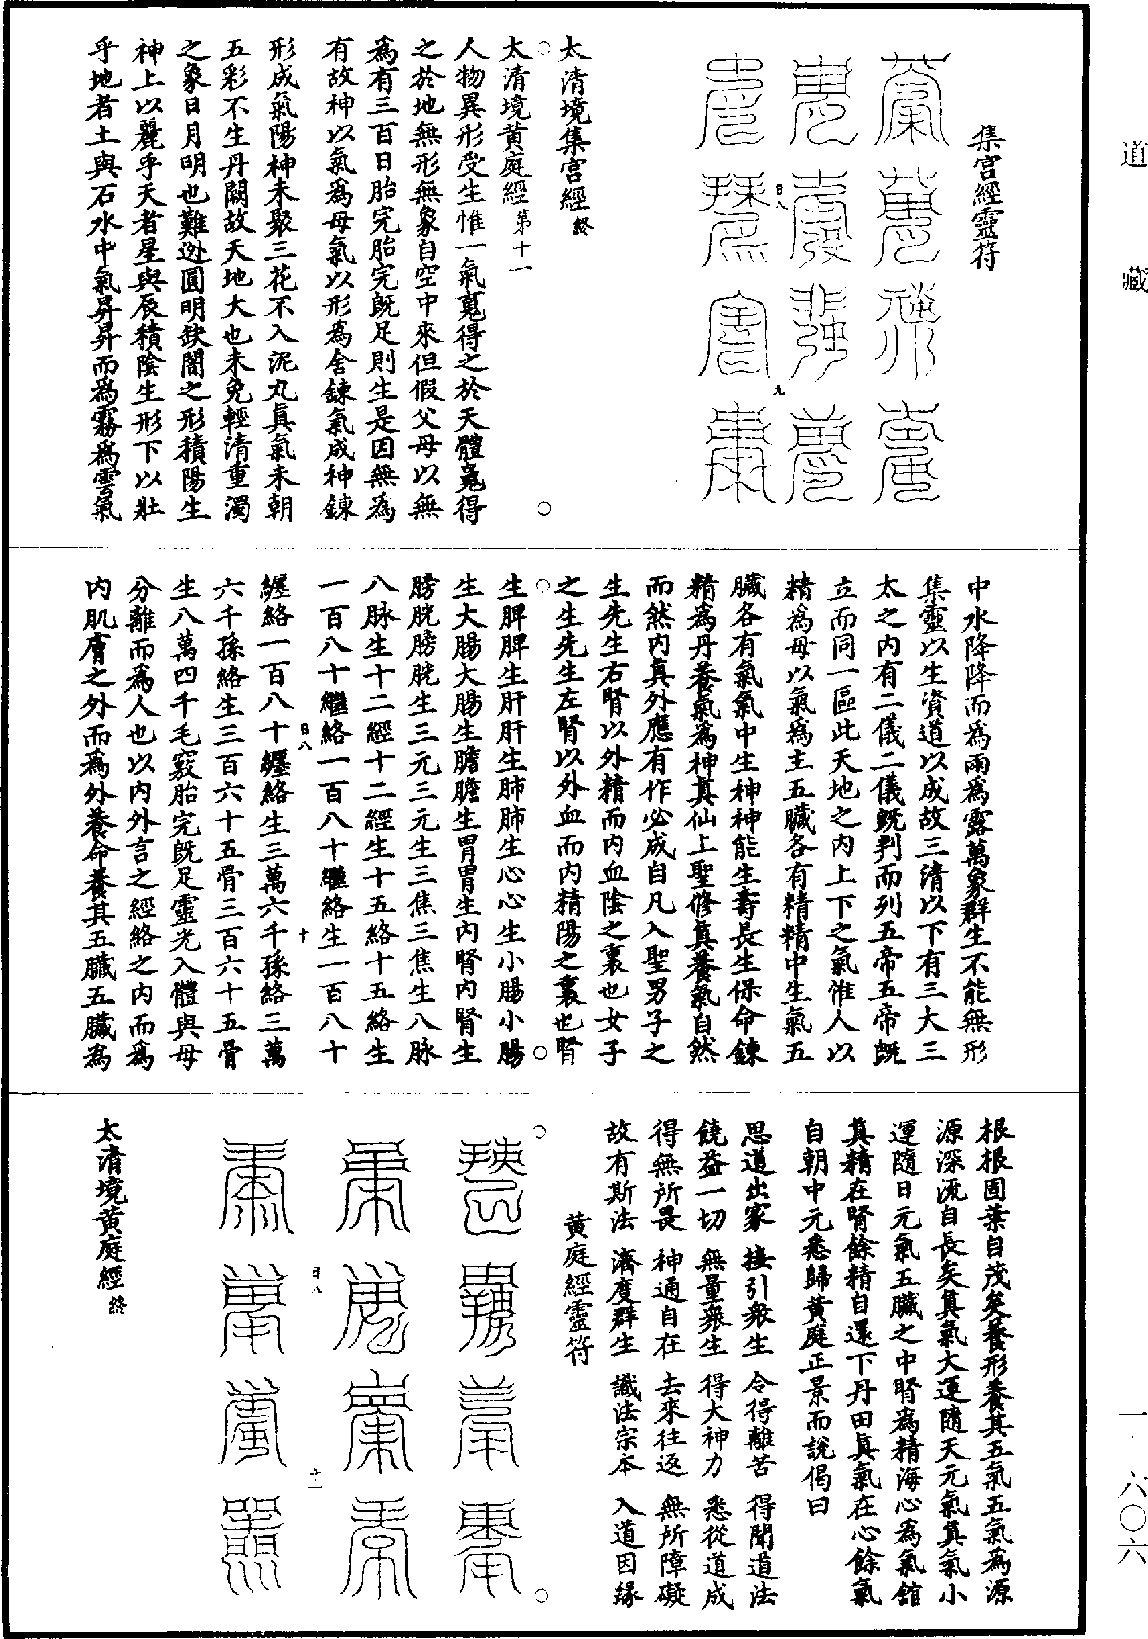 道藏
一·六〇六
集宮經靈符
太清境集宮經終
太清境黃庭經第十一
人物異形受生惟一氣冕得之於天體冕得
之於地無形無象自空中來但假父母以無
爲有三百日胎完胎完既足則生是因無爲
有故神以氣爲母氣以形爲舍鍊氣成神鍊
形成氣陽神未聚三花不入泥丸真氣未朝
五彩不生丹闕故天地大也未免輕清重濁
之象日月明也難逃圓明缺闇之形積陽生
神上以麗乎天者星與辰積陰生形下以壯
乎地者土與石水中氣昇昇而爲霧爲雲氣
中水降降而爲雨爲露萬象群生不能無形
集靈以生資道以成故三清以下有三大三
太之內有二儀二儀既判而列五帝五帝既
立而同一區此天地之內上下之氣惟人以
精爲母以氣爲主五臟各有精精中生氣五
臟各有氣氣中生神神能生壽長生保命鍊
精爲丹養氣爲神真仙上聖修真養氣自然
而然內真外應有作必成自凡入聖男子之
生先生右腎以外精而內血陰之裏也女子
之生先生左腎以外血而內精陽之裏也腎
生脾脾生肝肝生肺肺生心心生小腸小腸
生大腸大腸生膽膽生胃胃生內腎內腎生
膀胱膀胱生三元三元生三焦三焦生八脉
八脉生十二經十二經生十五絡十五絡生
一百八十繼絡一百八十繼絡生一百八十
纏絡一百八十纏絡生三萬六千孫絡三萬
六千孫絡生三百六十五骨三百六十五骨
生八萬四千毛竅胎完既足靈光入體與母
分離而爲人也以內外言之經絡之內而爲
內肌膚之外而爲外養命養其五臟五臟爲
根根固葉自茂矣養形養其五氣五氣爲源
源深流自長矣真氣大運隨天元氣真氣小
運隨日元氣五臟之中腎爲精海心爲氣館
真精在腎餘精自還下丹田真氣在心餘氣
自朝中元悉歸黃庭正景而說偈曰
思道出家 接引衆生 令得離苦 得聞道法
饒益一切 無量衆生 得大神力 悉從道成
得無所畏 神通自在 去來往返 無所障礙
故有斯法 濟度群生 識法宗本 入道因緣
黃庭經靈符
太清境黃庭經終